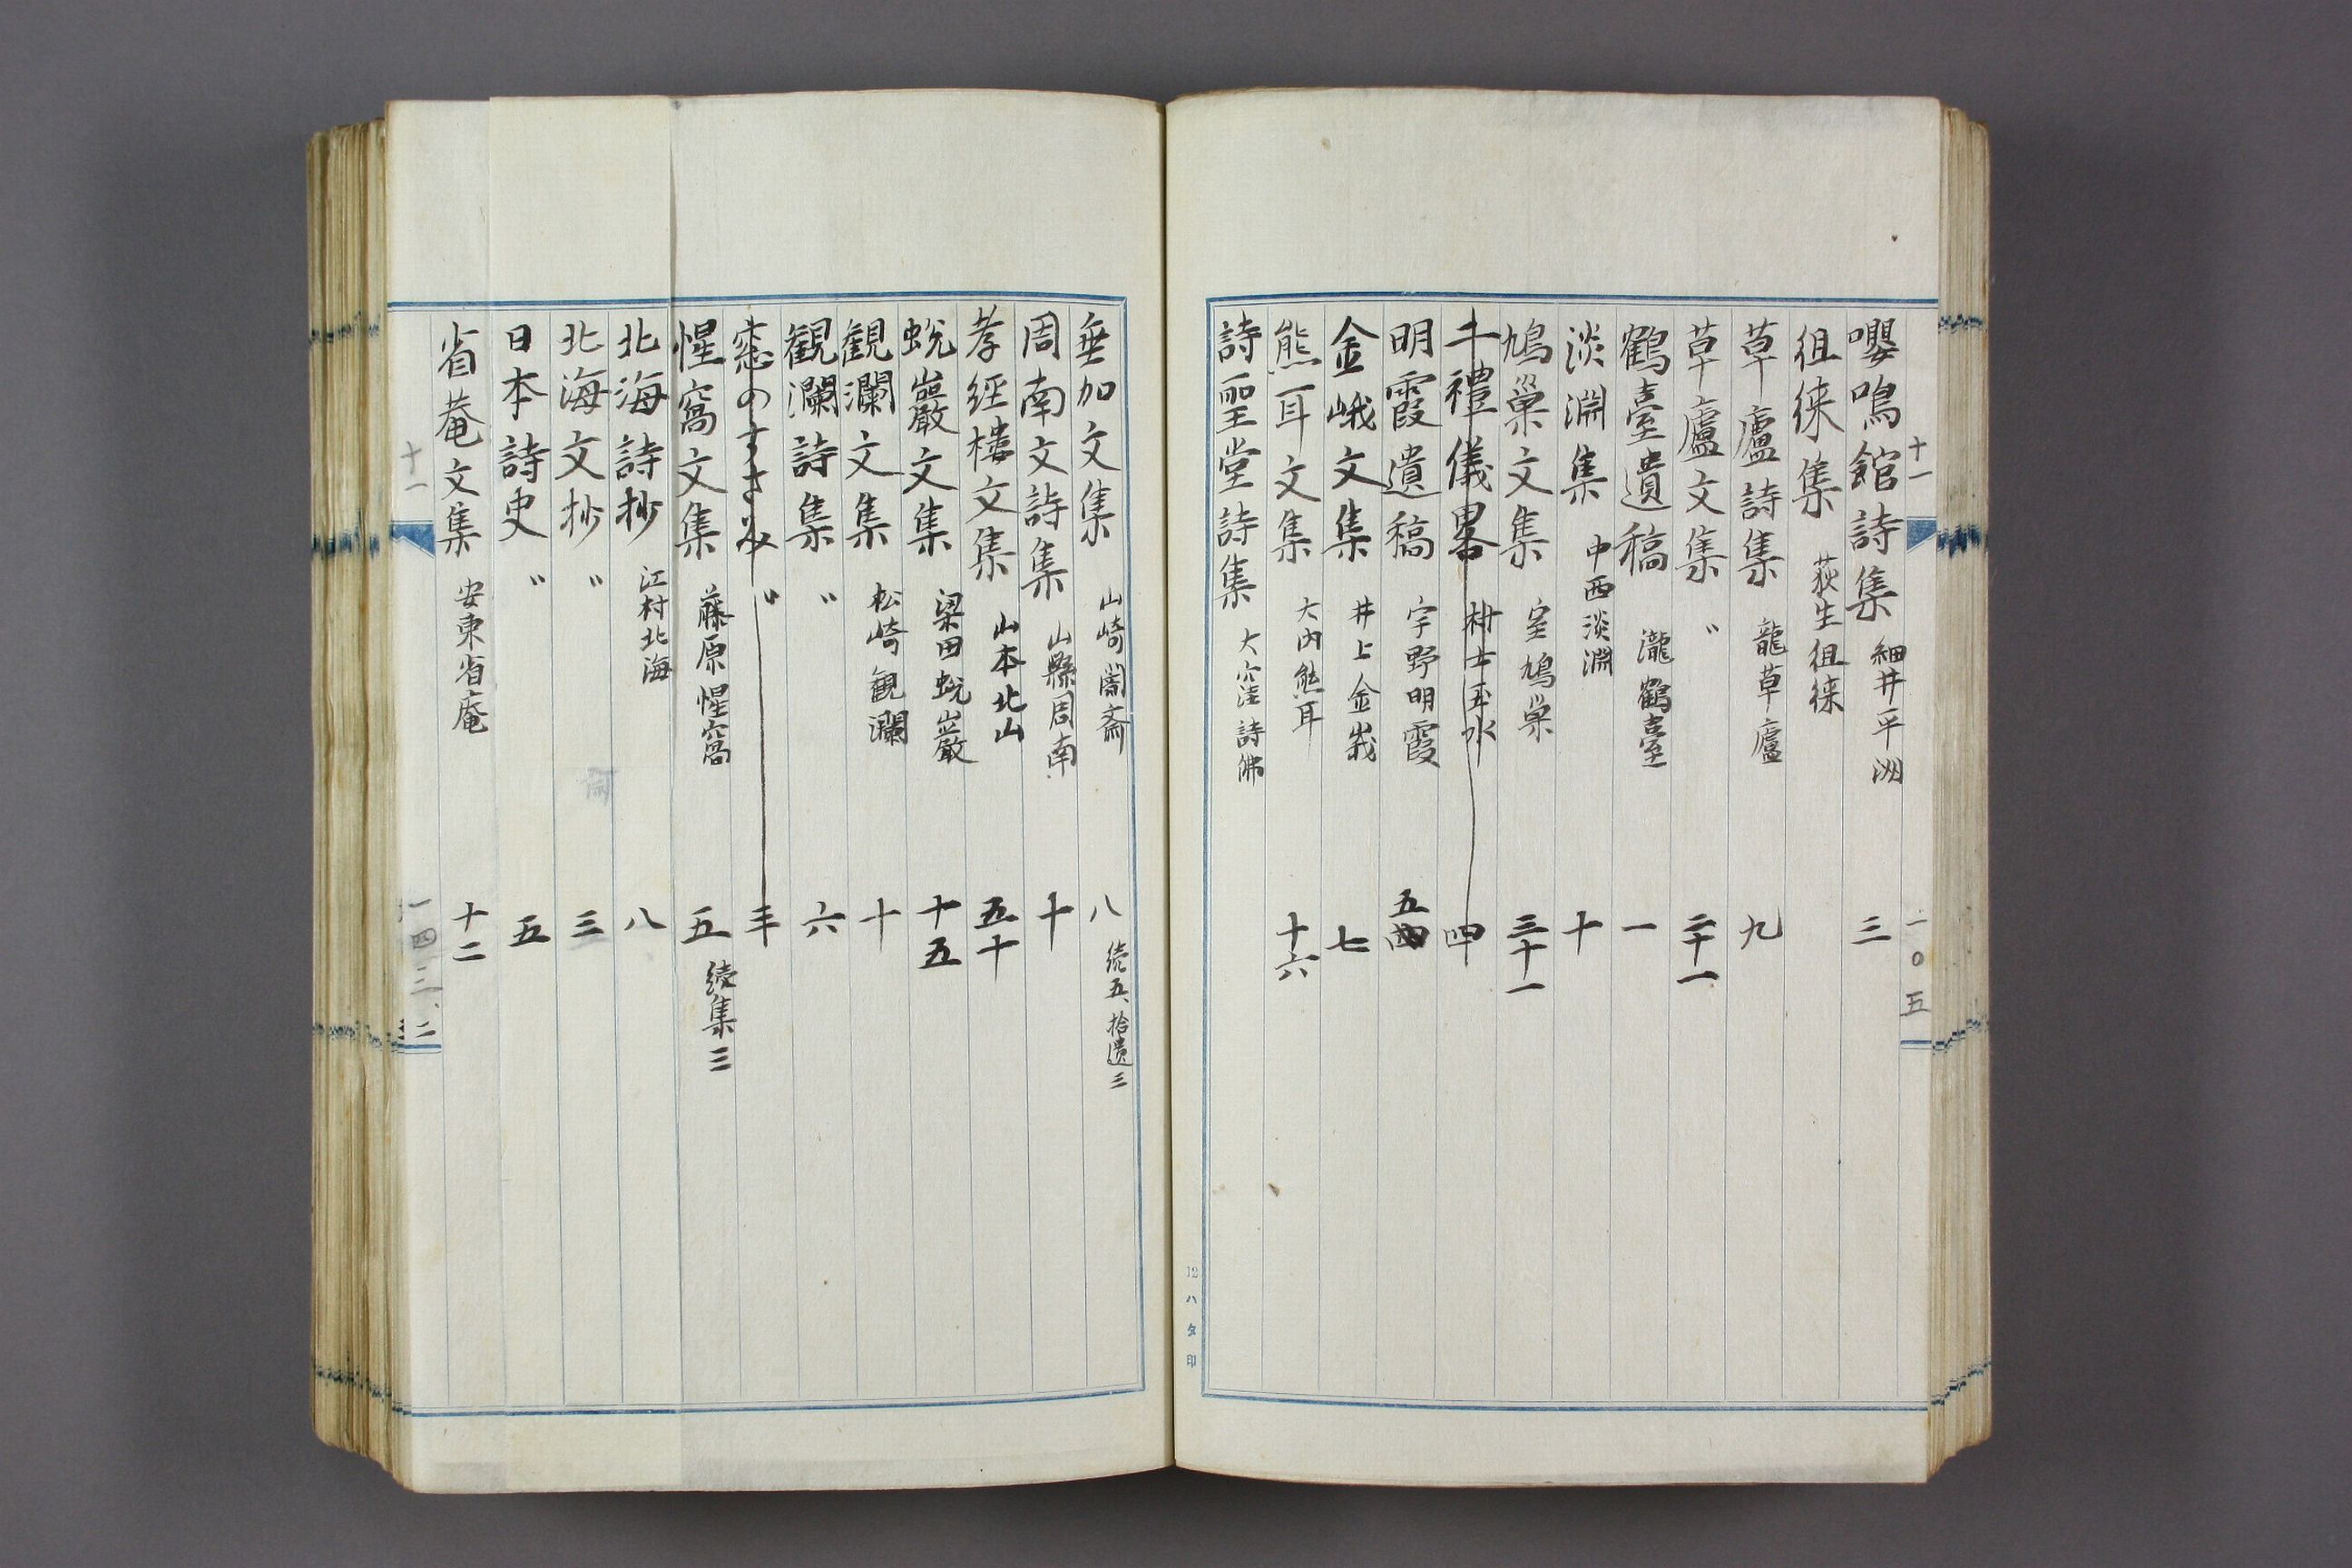 十一
一〇五
嚶鳴館詩集 細井平洲 三
徂徠集 荻生徂徠
草廬詩集 龍草廬 九
草廬文集 〃 二十一
鶴臺遺稿 瀧鶴臺 一
淡淵集 中西淡淵 十
鳩巣文集 室鳩巣 三十一
士禮儀畧 村士玉水 四
明霞遺稿 宇野明霞 五
金峨文集 井上金峩 七
熊耳文集 大内熊耳 十六
詩聖堂詩集 大窪詩佛
12ハタ印
垂加文集 山崎闇斎 八 続五、拾遺三
周南文詩集 山縣周南 十
孝経樓文集 山本北山 五十
蛻巖文集 梁田蛻巖 十五
観瀾文集 松崎観瀾 十
観瀾詩集 〃 六
窓のすさみ 〃 三
惺窩文集 藤原惺窩 五 續集三
北海詩抄 江村北海 八
北海文抄 〃 三
日本詩史 〃 五
省菴文集 安東省庵 十二
十一
一四三、二